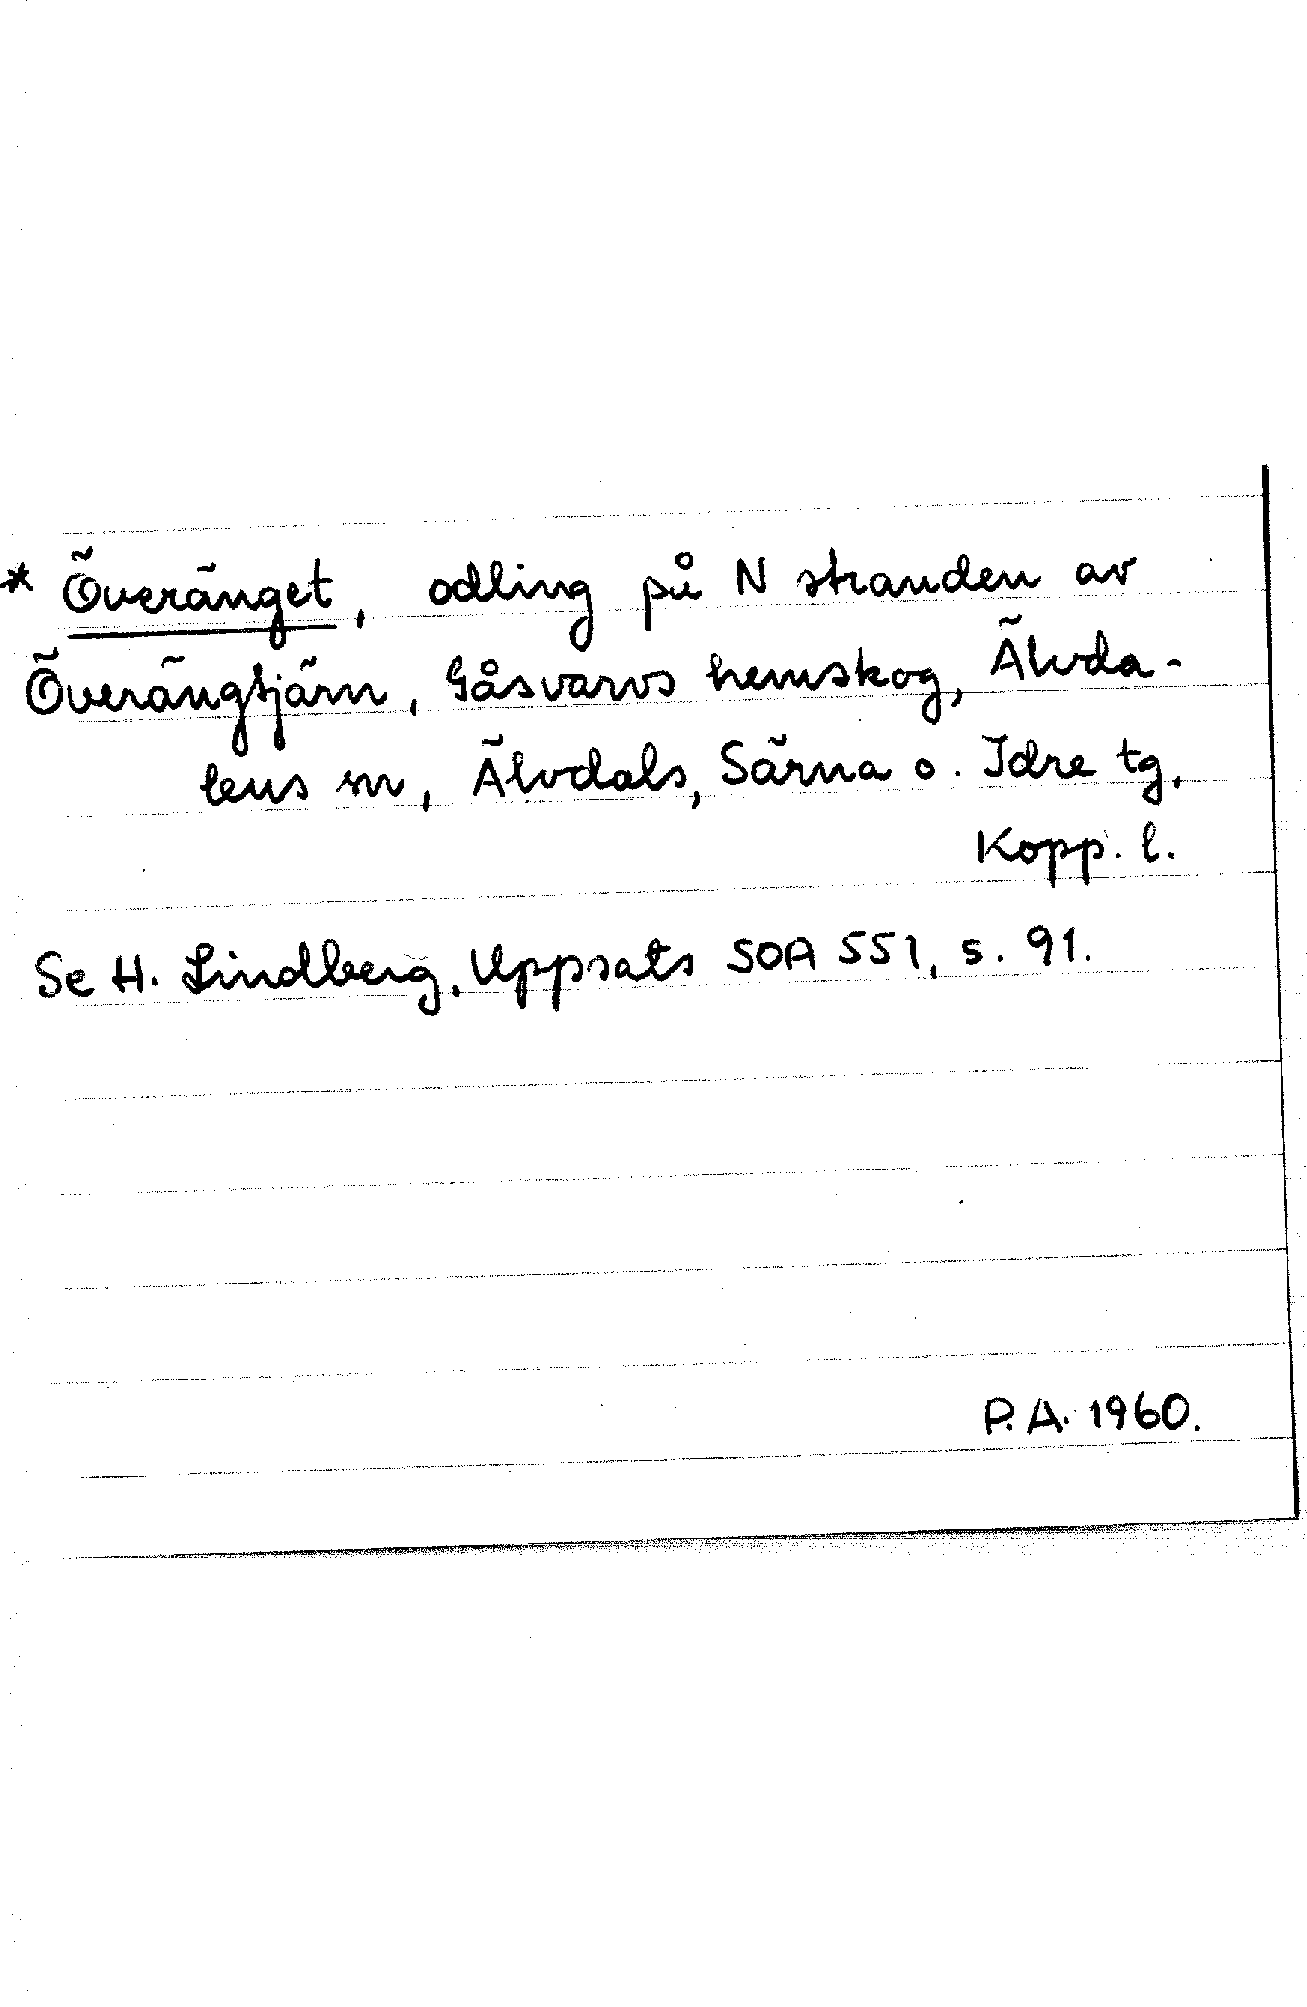 * Överänget, odling på N stranden av
Överängtjärn, Gåsvarvs hemskog, Älvda-
lens sn, Älvdals, Särna o. Idre tg,
Kopp. l.
Se H. Lindberg, Uppsats SOA 551, s. 91.
P. A. 1960.